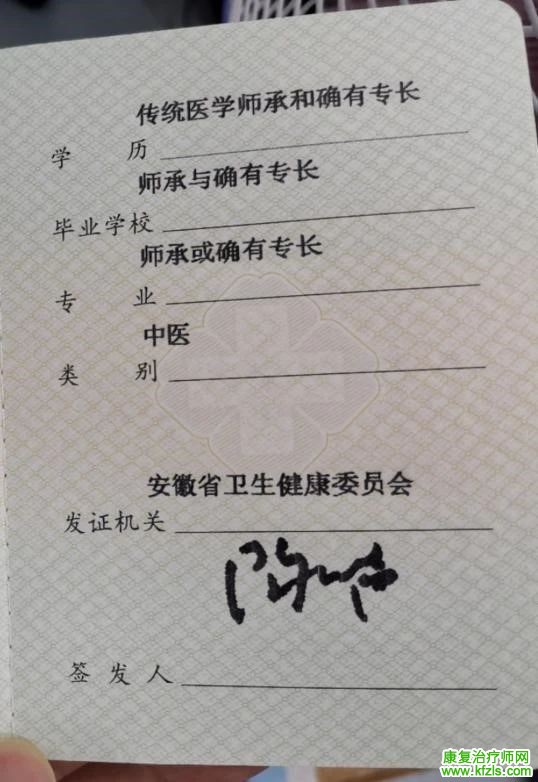 传统医学师承和确有专长
学 历
师承与确有专长
毕业学校
师承或确有专长
专 业
中医
类 别
安徽省卫生健康委员会
发证机关
签 发 人
康复治疗师网
www.kfzls.com